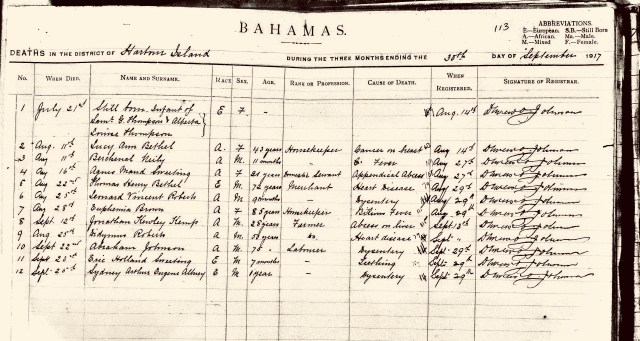 BAHAMAS.
113
ABBREVIATIONS.
E.—European. S.B.—Still Born
A.—African. Ma.—Male.
M.—Mixed F.—Female.
DEATHS IN THE DISTRICT OF Harbour Island DURING THE THREE MONTHS ENDING THE 30th DAY OF September 1917
No. WHEN DIED. NAME AND SURNAME. RACE SEX. AGE. RANK OR PROFESSION. CAUSE OF DEATH. WHEN REGISTERED. SIGNATURE OF REGISTRAR.
1 July 21st Still born Infant of E F - - Aug. 14th Johnson
Saml. G. Thompson & Alberta
Louise Thompson
2 Aug. 11th Lucy Ann Bethel A. F 43 years Housekeeper Cancer on breast Aug 14th Johnson
3 Aug 11th A M. 11 months - Fever Aug 27th Johnson
4 Aug 16th Agnes Maud Sweeting A F 21 years Domestic Servant Appendical Abcess Aug 27th Johnson
5 Aug 22nd Thomas Henry Bethel E M. 72 years Merchant Heart Disease Aug 29th Johnson
6 Aug 25th Leonard Vincent Roberts A M. 9 months - Dysentery Aug 29th Johnson
7 Aug 28th Euphemia Brown A F 85 years Housekeeper Bilious Fever Aug. 29th Johnson
8 Sept. 12th Jonathan Kemp A M. 28 years Farmer Abcess on liver Sept 13th Johnson
9 Aug 25th Roberts A M. 58 years Do. Heart disease Sept " Johnson
10 Sept 22nd Abraham Johnson A M. 70 " Labourer Dysentery Sept. 29th Johnson
11 Sept 23rd Eric Holland Sweeting E M 7 months - Teething Sept. 29th Johnson
12 Sept. 25th Sydney Arthur Eugene Albury E M. 1 year - Dysentery Sept 29th Johnson